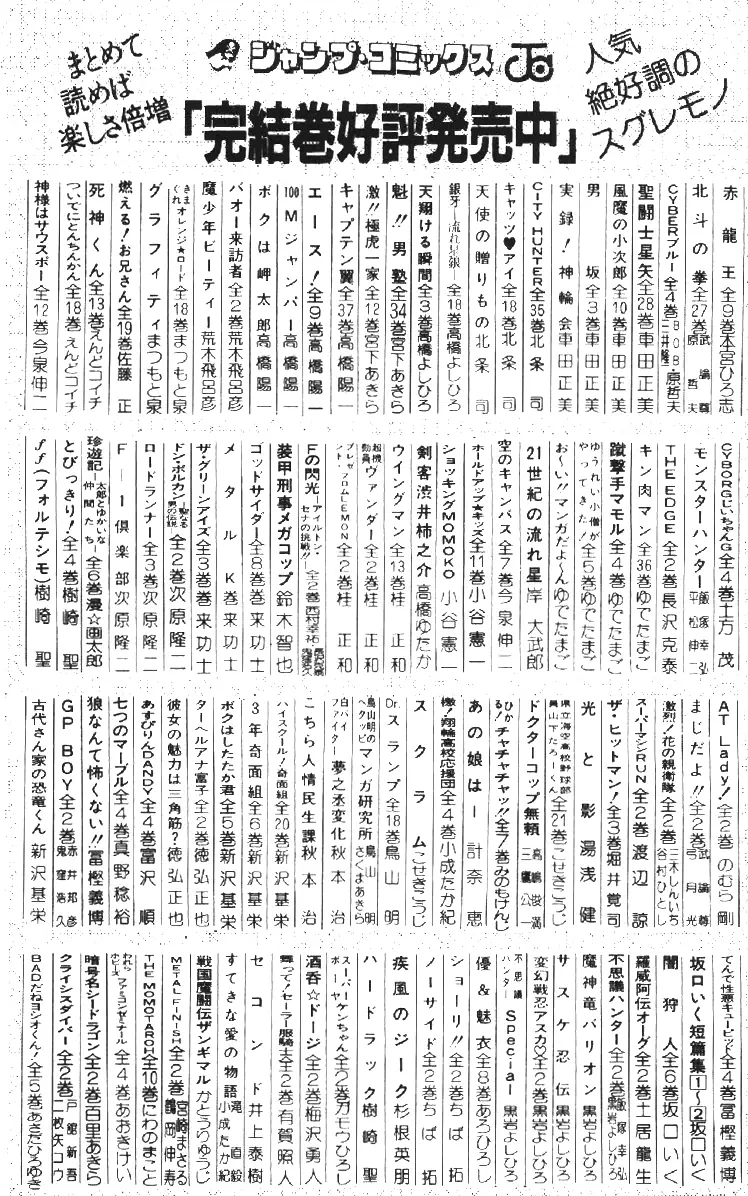 まとめて
読めば
楽しさ倍増
ジャンプ・コミックス
人気
絶好調の
スグレモノ
「完結巻好評発売中」
赤龍王 全9巻 本宮ひろ志
北斗の拳 全27巻 武論尊 原哲夫
CYBERブルー 全4巻 BOB・原哲夫 三井隆一
聖闘士星矢 全28巻 車田正美
風魔の小次郎 全10巻 車田正美
男坂 全3巻 車田正美
実録!神輪会 車田正美
CITY HUNTER 全35巻 北条司
キャッツ♥アイ 全18巻 北条司
天使の贈りもの 北条司
銀牙―流れ星銀― 全18巻 高橋よしひろ
天翔ける瞬間 全3巻 高橋よしひろ
魁!!男塾 全34巻 宮下あきら
激!!極虎一家 全12巻 宮下あきら
キャプテン翼 全37巻 高橋陽一
エース! 全9巻 高橋陽一
100Mジャンパー 高橋陽一
ボクは岬太郎 高橋陽一
バオー来訪者 全2巻 荒木飛呂彦
魔少年ビーティー 荒木飛呂彦
きまぐれオレンジ★ロード 全18巻 まつもと泉
グラフィティ まつもと泉
燃える!お兄さん 全19巻 佐藤正
死神くん 全13巻 えんどコイチ
ついでにとんちんかん 全18巻 えんどコイチ
神様はサウスポー 全12巻 今泉伸二
CYBORGじいちゃんG 全4巻 土方茂
モンスターハンター 飯塚幸弘 平松伸二
THE EDGE 全2巻 長沢克泰
キン肉マン 全36巻 ゆでたまご
蹴撃手マモル 全4巻 ゆでたまご
ゆうれい小僧がやってきた! 全5巻 ゆでたまご
お〜い!!マンガだよ〜ん ゆでたまご
21世紀の流れ星 岸大武郎
空のキャンバス 全7巻 今泉伸二
ホールドアップ★キッズ 全11巻 小谷憲一
ショッキングMOMOKO 小谷憲一
剣客渋井柿之介 高橋ゆたか
ウイングマン 全13巻 桂正和
超機動員ヴァンダー 全2巻 桂正和
プレゼント・フロムLEMON 全2巻 桂正和
Fの閃光―アイルトン・セナの挑戦!!― 全2巻 西村幸祐
装甲刑事メガコップ 鈴木智也
ゴッドサイダー 全8巻 巻来功士
メタルK 巻来功士
ザ・グリーンアイズ 全3巻 巻来功士
ドン・ボルカン―聖なる男の伝説― 全2巻 次原隆二
ロードランナー 全3巻 次原隆二
F―1倶楽部 次原隆二
珍遊記―太郎とゆかいな仲間たち― 全6巻 漫☆画太郎
とびっきり! 全4巻 樹崎聖
ff(フォルテシモ) 樹崎聖
AT Lady! 全2巻 のむら剛
まじだよ!! 全2巻 武論尊 弓月光
激烈!花の親衛隊 全2巻 三木しんいち 谷村ひとし
スーパーマシンRUN 全2巻 渡辺諒
ザ・ヒットマン! 全3巻 堀井覚司
光と影 湯浅健
県立海空高校野球部員山下たろーくん 全21巻 こせきこうじ
ドクターコップ無頼 高嶋俊満 三鷹公一
ひかる!チャチャチャッ!! 全7巻 みのもけんじ
あの娘は― 計奈恵
機!翔輪高校応援団 全4巻 小成たか紀
スクラム こせきこうじ
Dr.スランプ 全18巻 鳥山明
鳥山明のヘタッピマンガ研究所 鳥山明 さくまあきら
白バイファイター夢之丞変化 秋本治
こちら人情民生課 秋本治
ハイスクール!奇面組 全20巻 新沢基栄
3年奇面組 全6巻 新沢基栄
ボクはしたたか君 全5巻 新沢基栄
ターヘルアナ富子 全2巻 徳弘正也
彼女の魅力は三角筋? 徳弘正也
あすぴりんDANDY 全4巻 富沢順
七つのマーブル 全4巻 真野稔裕
狼なんて怖くない!! 冨樫義博
GP BOY 全2巻 赤井邦彦 鬼窪浩久
古代さん家の恐竜くん 新沢基栄
てんで性悪キューピッド 全4巻 冨樫義博
坂口いく短篇集1〜2 坂口いく
闇狩人 全6巻 坂口いく
羅威阿伝オーグ 全2巻 土居龍生
不思議ハンター 全2巻 飯塚幸弘 黒岩よしひろ
魔神竜バリオン 黒岩よしひろ
サスケ忍伝 黒岩よしひろ
変幻戦忍アスカ♡ 全2巻 黒岩よしひろ
不思議ハンターSpecial 黒岩よしひろ
優&魅衣 全8巻 あろひろし
ショーリ!! 全2巻 ちば拓
ノーサイド 全2巻 ちば拓
疾風のジーク 杉根英朋
ハードラック 樹崎聖
スーパーボーイケンちゃん 全2巻 ガモウひろし
酒呑☆ドージ 全2巻 梅沢勇人
舞って!セーラー服騎士 全2巻 有賀照人
セコンド 井上泰樹
すてきな愛の物語 滝直毅 小成たか紀
戦国魔闘伝ザンギマル かとうりゅうじ
METAL FINISH 全2巻 宮崎まさる 鶴岡伸寿
THE MOMOTAROH 全10巻 にわのまこと
われらホビーズ ファミコンゼミナール 全4巻 あおきけい
暗号名シードラゴン 全2巻 百里あきら
クライシスダイバー 全2巻 戸館新吾 二枚矢コウ
BADだねヨシオくん! 全5巻 あさだひろゆき